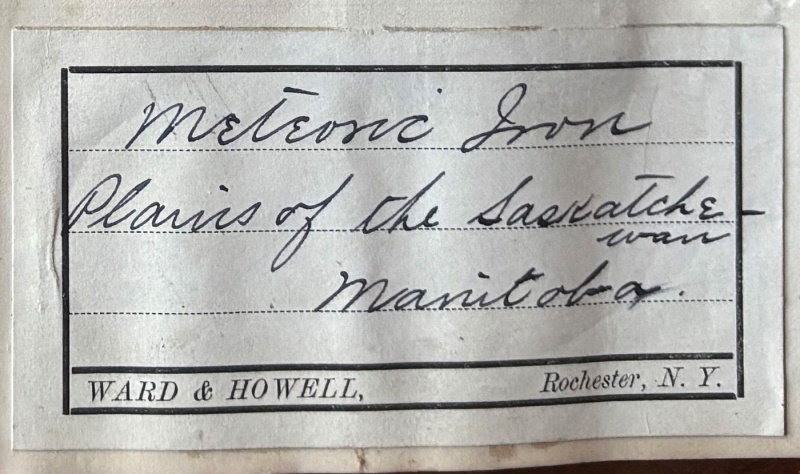 Meteoric Iron
Plains of the Saskatche-
wan
Manitoba.
WARD & HOWELL, Rochester, N. Y.